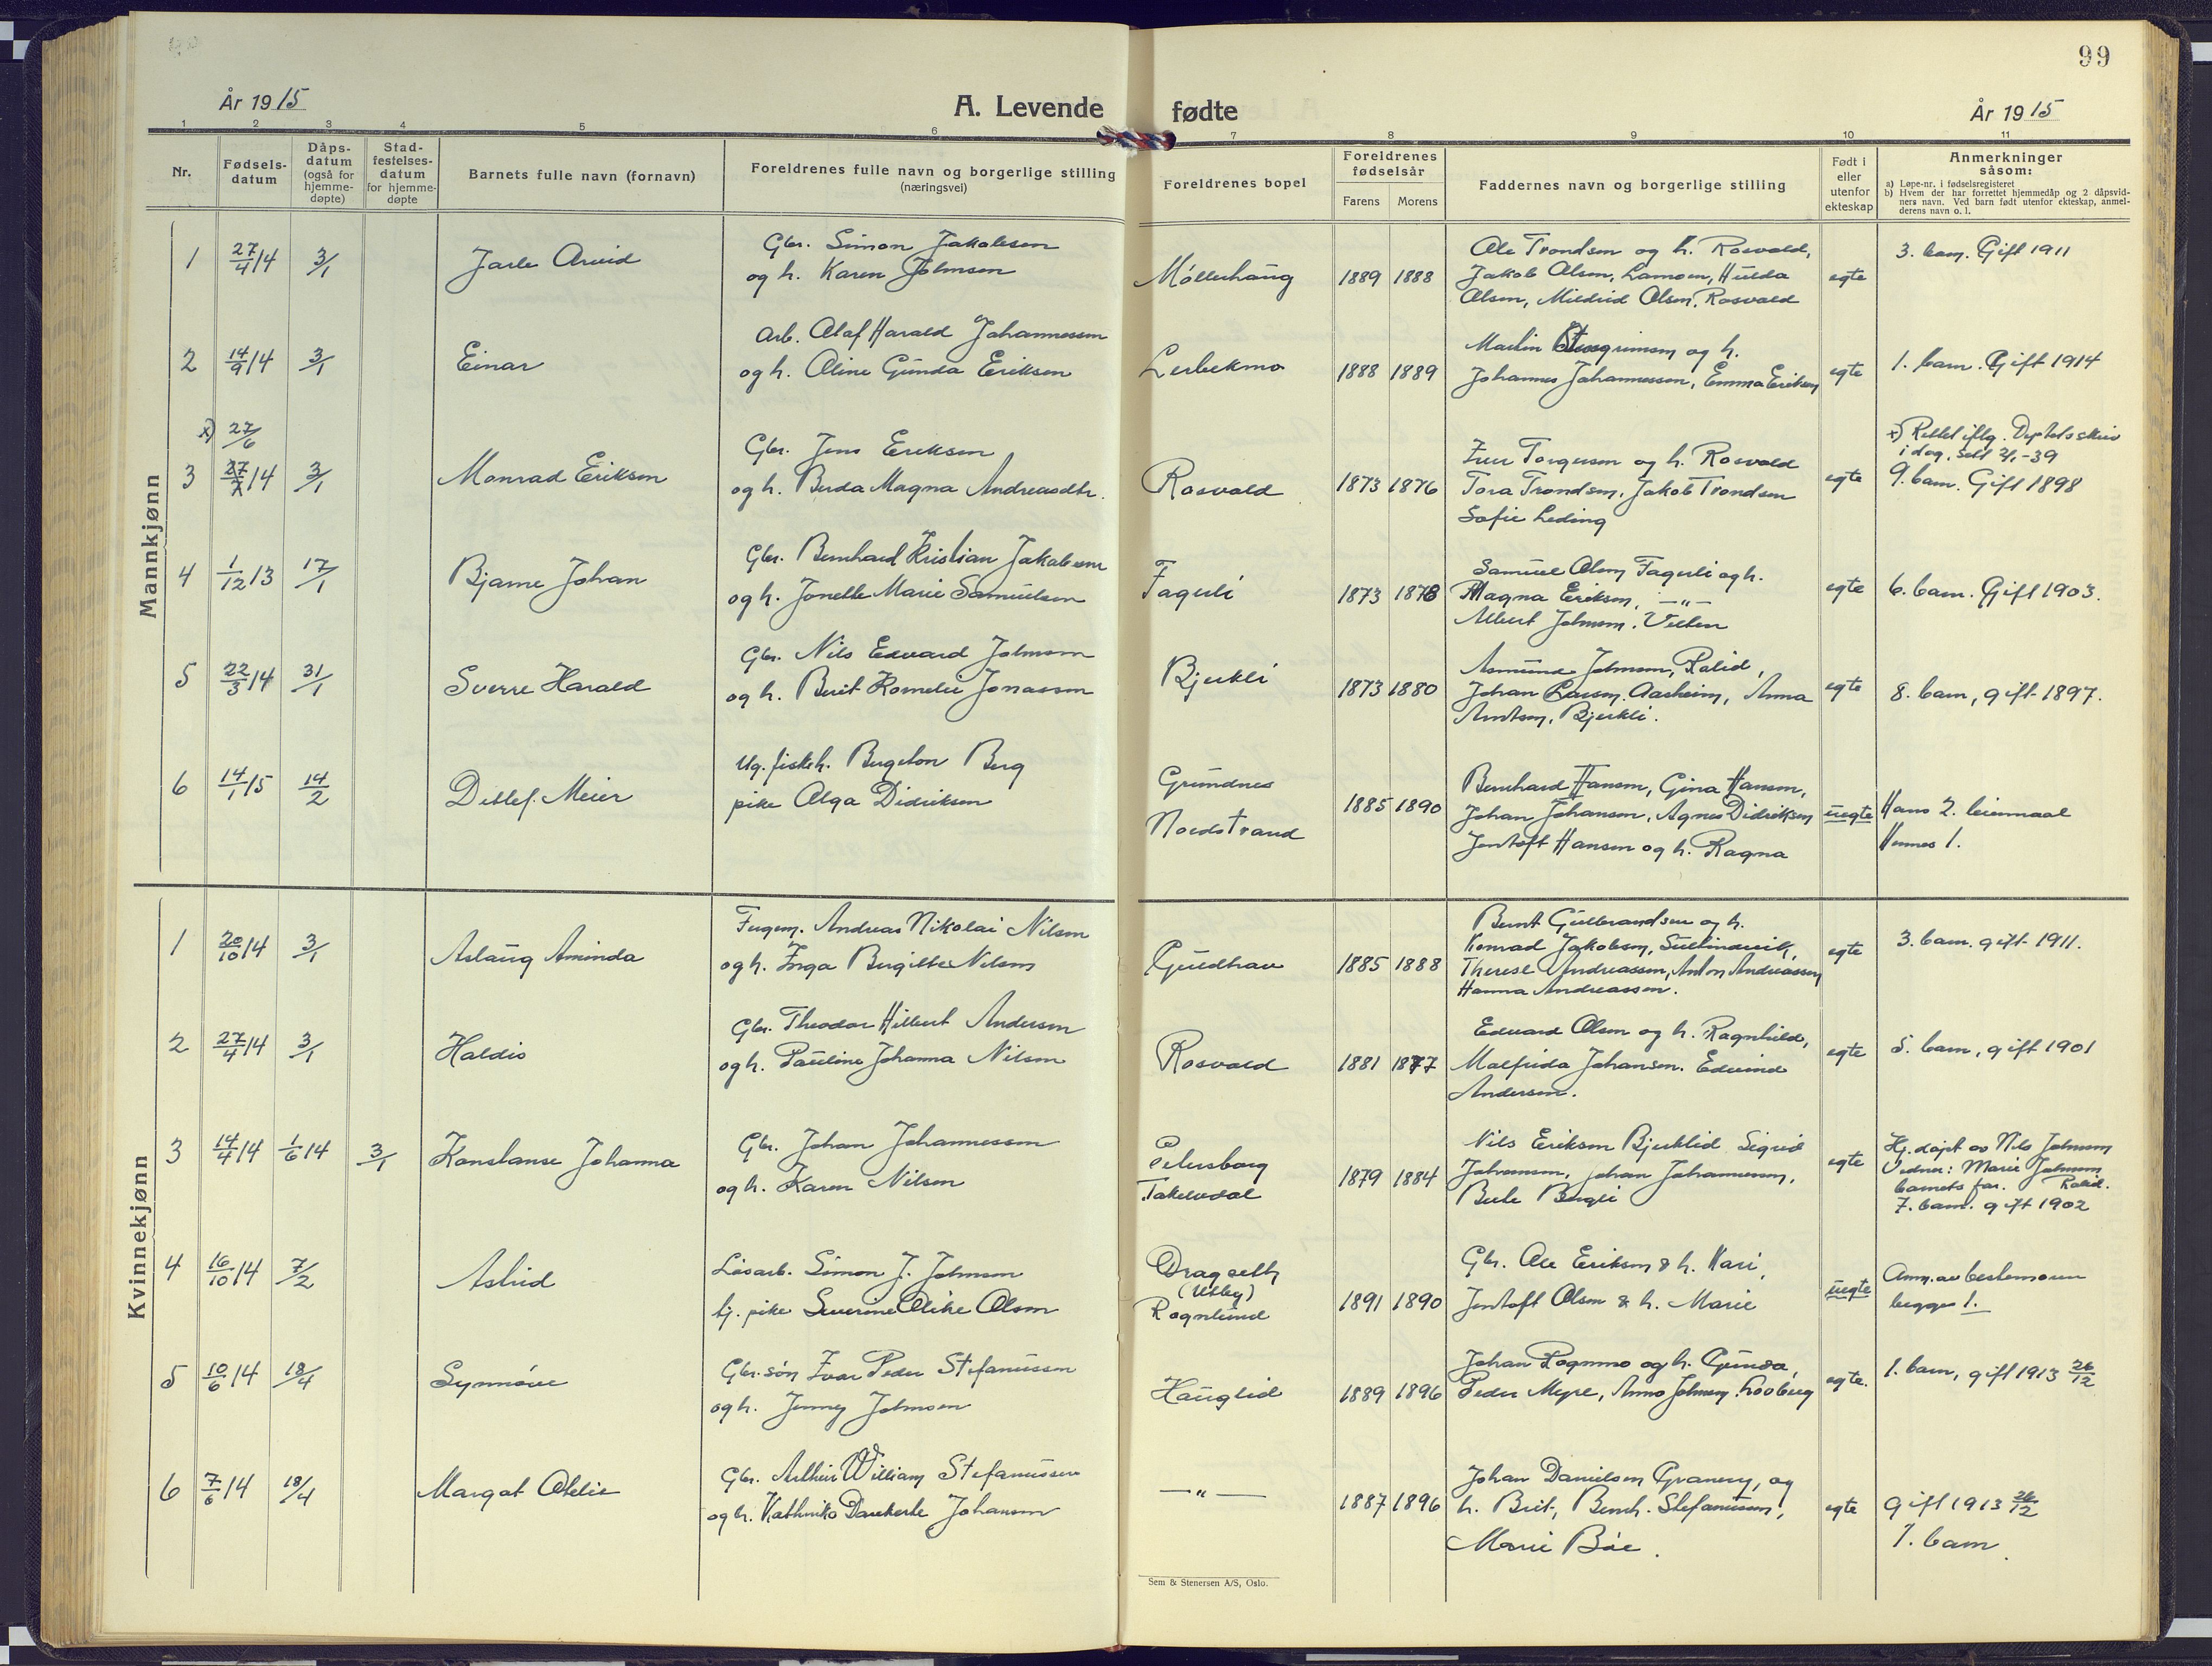 99
År 1915
A. Levende fødte
År 1915
1 2 3 4 5 6 7 8 9 10 11
Nr.
Fødsels-
datum
Dåps-
datum
(også for
hjemme-
døpte)
Stad-
festelses-
datum
for hjemme-
døpte
Barnets fulle navn (fornavn)
Foreldrenes fulle navn og borgerlige stilling
(næringsvei)
Foreldrenes bopel
Foreldrenes
fødselsår
Farens Morens
Faddernes navn og borgerlige stilling
Født i
eller
utenfor
ekteskap
Anmerkninger
såsom:
a) Løpe-nr. i fødselsregisteret
b) Hvem der har forrettet hjemmedåp og 2 dåpsvid-
ners navn. Ved barn født utenfor ekteskap, anmel-
derens navn o. l.
Mannkjønn
1 27/4 14 3/1 Jarle Arvid
Gbr. Simon Jakobsen
og h. Karen Johnsen
Möllerhaug 1889 1888
Ole Trondsen og h. Rosvold,
Jakob Olsen, Lamoen, Hulda
Olsen, Mildrid Olsen, Rosvold
egte
3. barn. Gift 1911
2 14/9 14 3/1 Einar
Arb. Olaf Harald Johannessen
og h. Oline Gunda Eriksen
Lerbekmo 1888 1889
Martin og h.
Johannes Johannessen, Emma Eriksen
egte
1. barn. Gift 1914
x) 27/6
3 14 3/1 Monrad Eriksen
Gbr. Jens Eriksen
og h. Berda Magna Andreasdtr.
Rosvold 1873 1876
Iver Torgersen og h. Rosvold
Tora Trondsen, Jakob Trondsen
Sofie Leding
egte
x) Rettet iflg. Dep.tets skriv
i dag. Sell -39
9. barn. Gift 1898
4 1/12 13 17/1 Bjarne Johan
Gbr. Bernhard Kristian Jakobsen
og h. Jonette Marie Samuelsen
Fagerli 1873 1878
Samuel Olsen Fagerli og h.
Magna Eriksen, —"—
Albert Johnsen. Velten
egte
6. barn. Gift 1903.
5 22/3 14 31/1 Sverre Harald
Gbr. Nils Edvard Johnsen
og h. Berit Kornelie Jonassen
Bjerkli 1873 1880
Asmund Johnsen, Rolid,
Johan Larsen, Aasheim, Anna
Arntsen, Bjerkli.
egte
8. barn, gift 1897.
6 14/1 15 14/2 Detlef Meier
Ug. fiskeh. Bergeton Berg
pike Olga Didriksen
Grundnes
Nordstrand
1885 1890
Bernhard Hansen, Gina Hansen,
Johan Johansen, Agnes Didriksen
Jentoft Hansen og h. Ragna
uegte
Hans 2. leiermaal
Hennes 1.
Kvinnekjønn
1 20/10 14 3/1 Aslaug Aminda
Fergem. Andreas Nikolai Nilsen
og h. Inga Bergitte Nilsen
Guldhav 1885 1888
Bernt Gulbrandsen og h.
Konrad Jakobsen, Sultindvik,
Therese Andreassen, Anton Andreassen
Hanna Andreassen.
egte
3. barn. gift 1911.
2 27/4 14 3/1 Haldis
Gbr. Theodor Hilbert Andersen
og h. Pauline Johanna Nilsen
Rosvold 1881 1877
Edvard Olsen og h. Ragnhild,
Malfrida Johansen. Edvind
Andersen.
egte
5. barn, gift 1901
3 14/4 14 1/6 14 3/1 Konstanse Johanna
Gbr. Johan Johannessen
og h. Karen Nilsen
Petersborg
Takelvdal
1879 1884
Nils Eriksen Bjerklid Sigrid
Johansen, Johan Johannessen,
Berle Bergli
egte
Hj. døpt av Nils Johnsen
Vidner: Marie Johnsen
barnets far. Rolid.
7. barn. gift 1902
4 16/10 14 7/2 Astrid
Løsarb. Simon J. Johnsen
tj. pike Severine Olike Olsen
Dragseth
(Utby)
Rognlund
1891 1890
Gbr. Ole Eriksen & h. Kari,
Jentoft Olsen & h. Marie
uegte
Anm. av bestemoren
begges 1.
5 10/6 14 18/4 Synnöve
Gbr. søn Ivar Peder Stefanussen
og h. Jenny Johnsen
Hauglid 1889 1896
Johan Rognmo og h. Gunda,
Peder Myre, Anna Johnsen.
egte.
1. barn, gift 1913 26/12
6 7/6 14 18/4 Margot Otelie
Gbr. Arthur William Stefanussen
og h. Johansen
—"—
1887 1896
Johan Danielsen Granerg, og
h. Berit, Bernh. Stefanussen,
Marie Böe.
egte
gift 1913 26/12
1. barn
Sem & Stenersen A/S, Oslo.